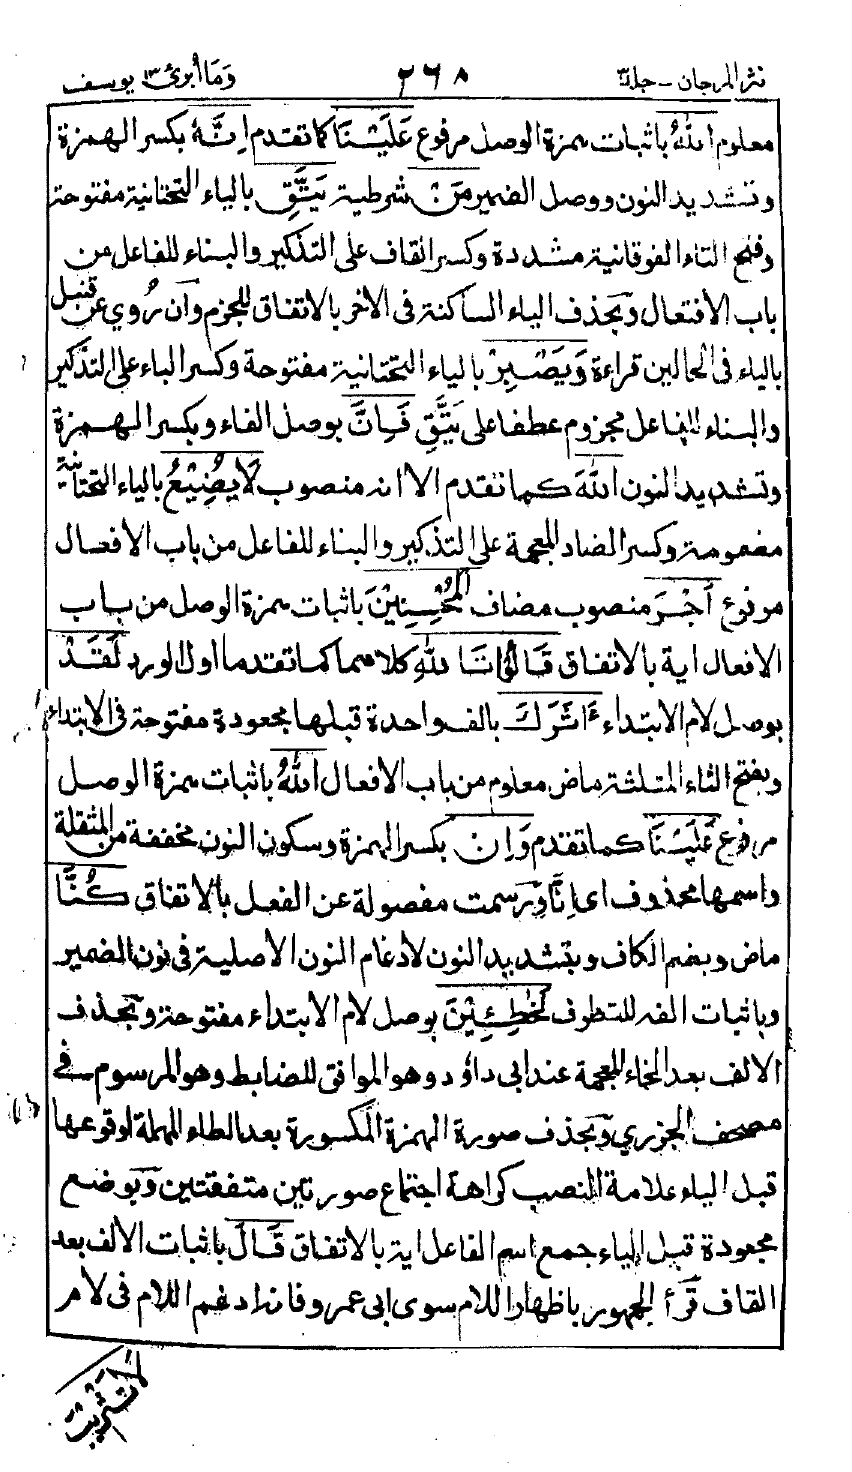 نثر المرجان - جلد٣ ٢٦٨ وَمَا أبرئ ١٣ يوسف
معلوم اللهُ باثبات همزة الوصل مرفوع عَلَيْنَا كما تقدم اِنَّهٗ بكسر الهمزة
وتشديد النون ووصل الضمير مَنْ شرطية يَتَّقِ بالياء التحتانية مفتوحة
وفتح التاء الفوقانية مشددة وكسر القاف على التذكير والبناء للفاعل من
باب الافتعال وبحذف الياء الساكنة فى الآخر بالاتفاق للجزم وان رُوي عن قنبل
بالياء فى الحالين قراءة وَيَصْبِرْ بالياء التحتانية مفتوحة وكسر الباء على التذكير
والبناء للفاعل مجزوم عطفا على يَتَّقِ فَاِنَّ بوصل الفاء وبكسر الهمزة
وتشديد النون اللهَ كما تقدم الا انه منصوب لَا يُضِيْعُ بالياء التحتانية
مضمومة وكسر الضاد المعجمة على التذكير والبناء للفاعل من باب الافعال
مرفوع اَجْرَ منصوب مضاف الْمُحْسِنِيْنَ باثبات همزة الوصل من باب
الافعال اية بالاتفاق قَالُوْا تَا للهِ كلاهما كما تقدما اول الورد لَقَدْ
بوصل لام الابتداء ءَاثَرَكَ بالف واحدة قبلها مجعودة مفتوحة فى الابتداء
وبفتح الثاء المثلثة ماض معلوم من باب الافعال اللهُ باثبات همزة الوصل
مرفوع عَلَيْنَا كما تقدم وَاِنْ بكسر الهمزة وسكون النون مخففة من المثقلة
واسمها محذوف اى اِنَّا ورسمت مفصولة عن الفعل بالاتفاق كُنَّا
ماض وبضم الكاف وبتشديد النون لادغام النون الاصلية فى نون الضمير
وباثبات الفه للتطرف لَخٰطِئِيْنَ بوصل لام الابتداء مفتوحة وبحذف
الالف بعد الخاء المعجمة عند ابى داؤد وهو الموافق للضابط وهو المرسوم فى
مصحف الجزري وبحذف صورة الهمزة المكسورة بعد الطاء المهملة لوقوعها
قبل الياء علامة النصب كراهة اجتماع صورتين متفقتين وبوضع
مجعودة قبل الياء جمع اسم الفاعل اية بالاتفاق قَالَ باثبات الالف بعد
القاف قرأ الجمهور باظهار اللام سوى ابى عمرو فانه ادغم اللام فى لام
لَا تَثْرِيْبَ